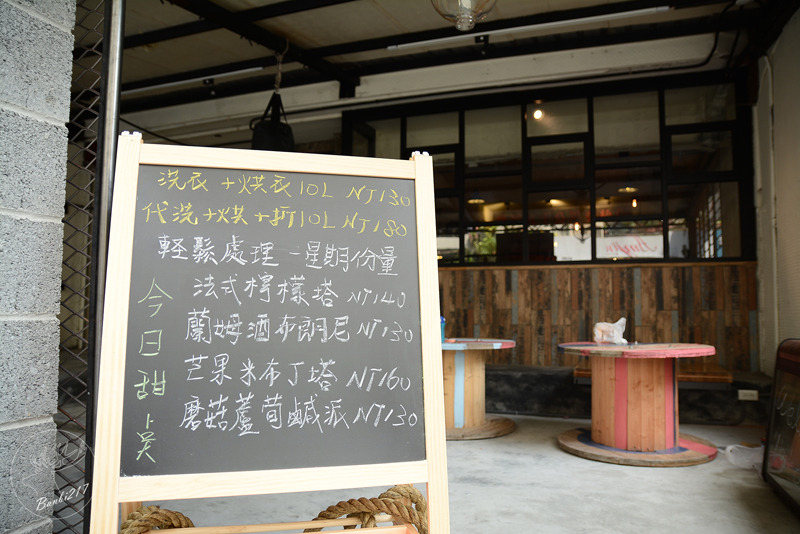 洗衣+烘衣10L NT130
代洗+烘+折10L NT180
輕鬆處理一星期份量
今日甜點
法式檸檬塔 NT140
蘭姆酒布朗尼 NT130
芒果米布丁塔 NT160
磨菇蘆筍鹹派 NT130
Bunbi217